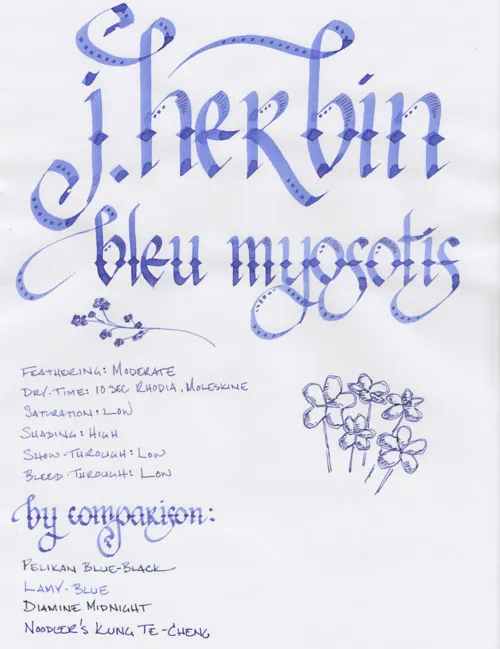 j. herbin
bleu myosotis
Feathering: Moderate
Dry-Time: 10 sec Rhodia, Moleskine
Saturation: Low
Shading: High
Show-Through: Low
Bleed-Through: Low
by comparison:
Pelikan Blue-Black
Lamy-Blue
Diamine Midnight
Noodler's Kung Te-Cheng